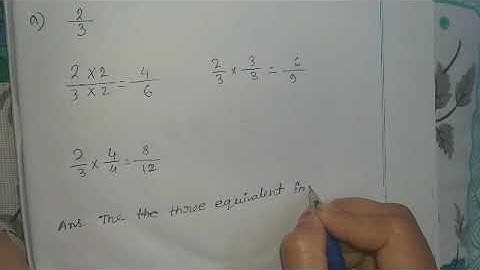 a) 2/3
2 × 2 / 3 × 2 = 4/6
2/3 × 3/3 = 6/9
2/3 × 4/4 = 8/12
Ans. The the three equivalent fra